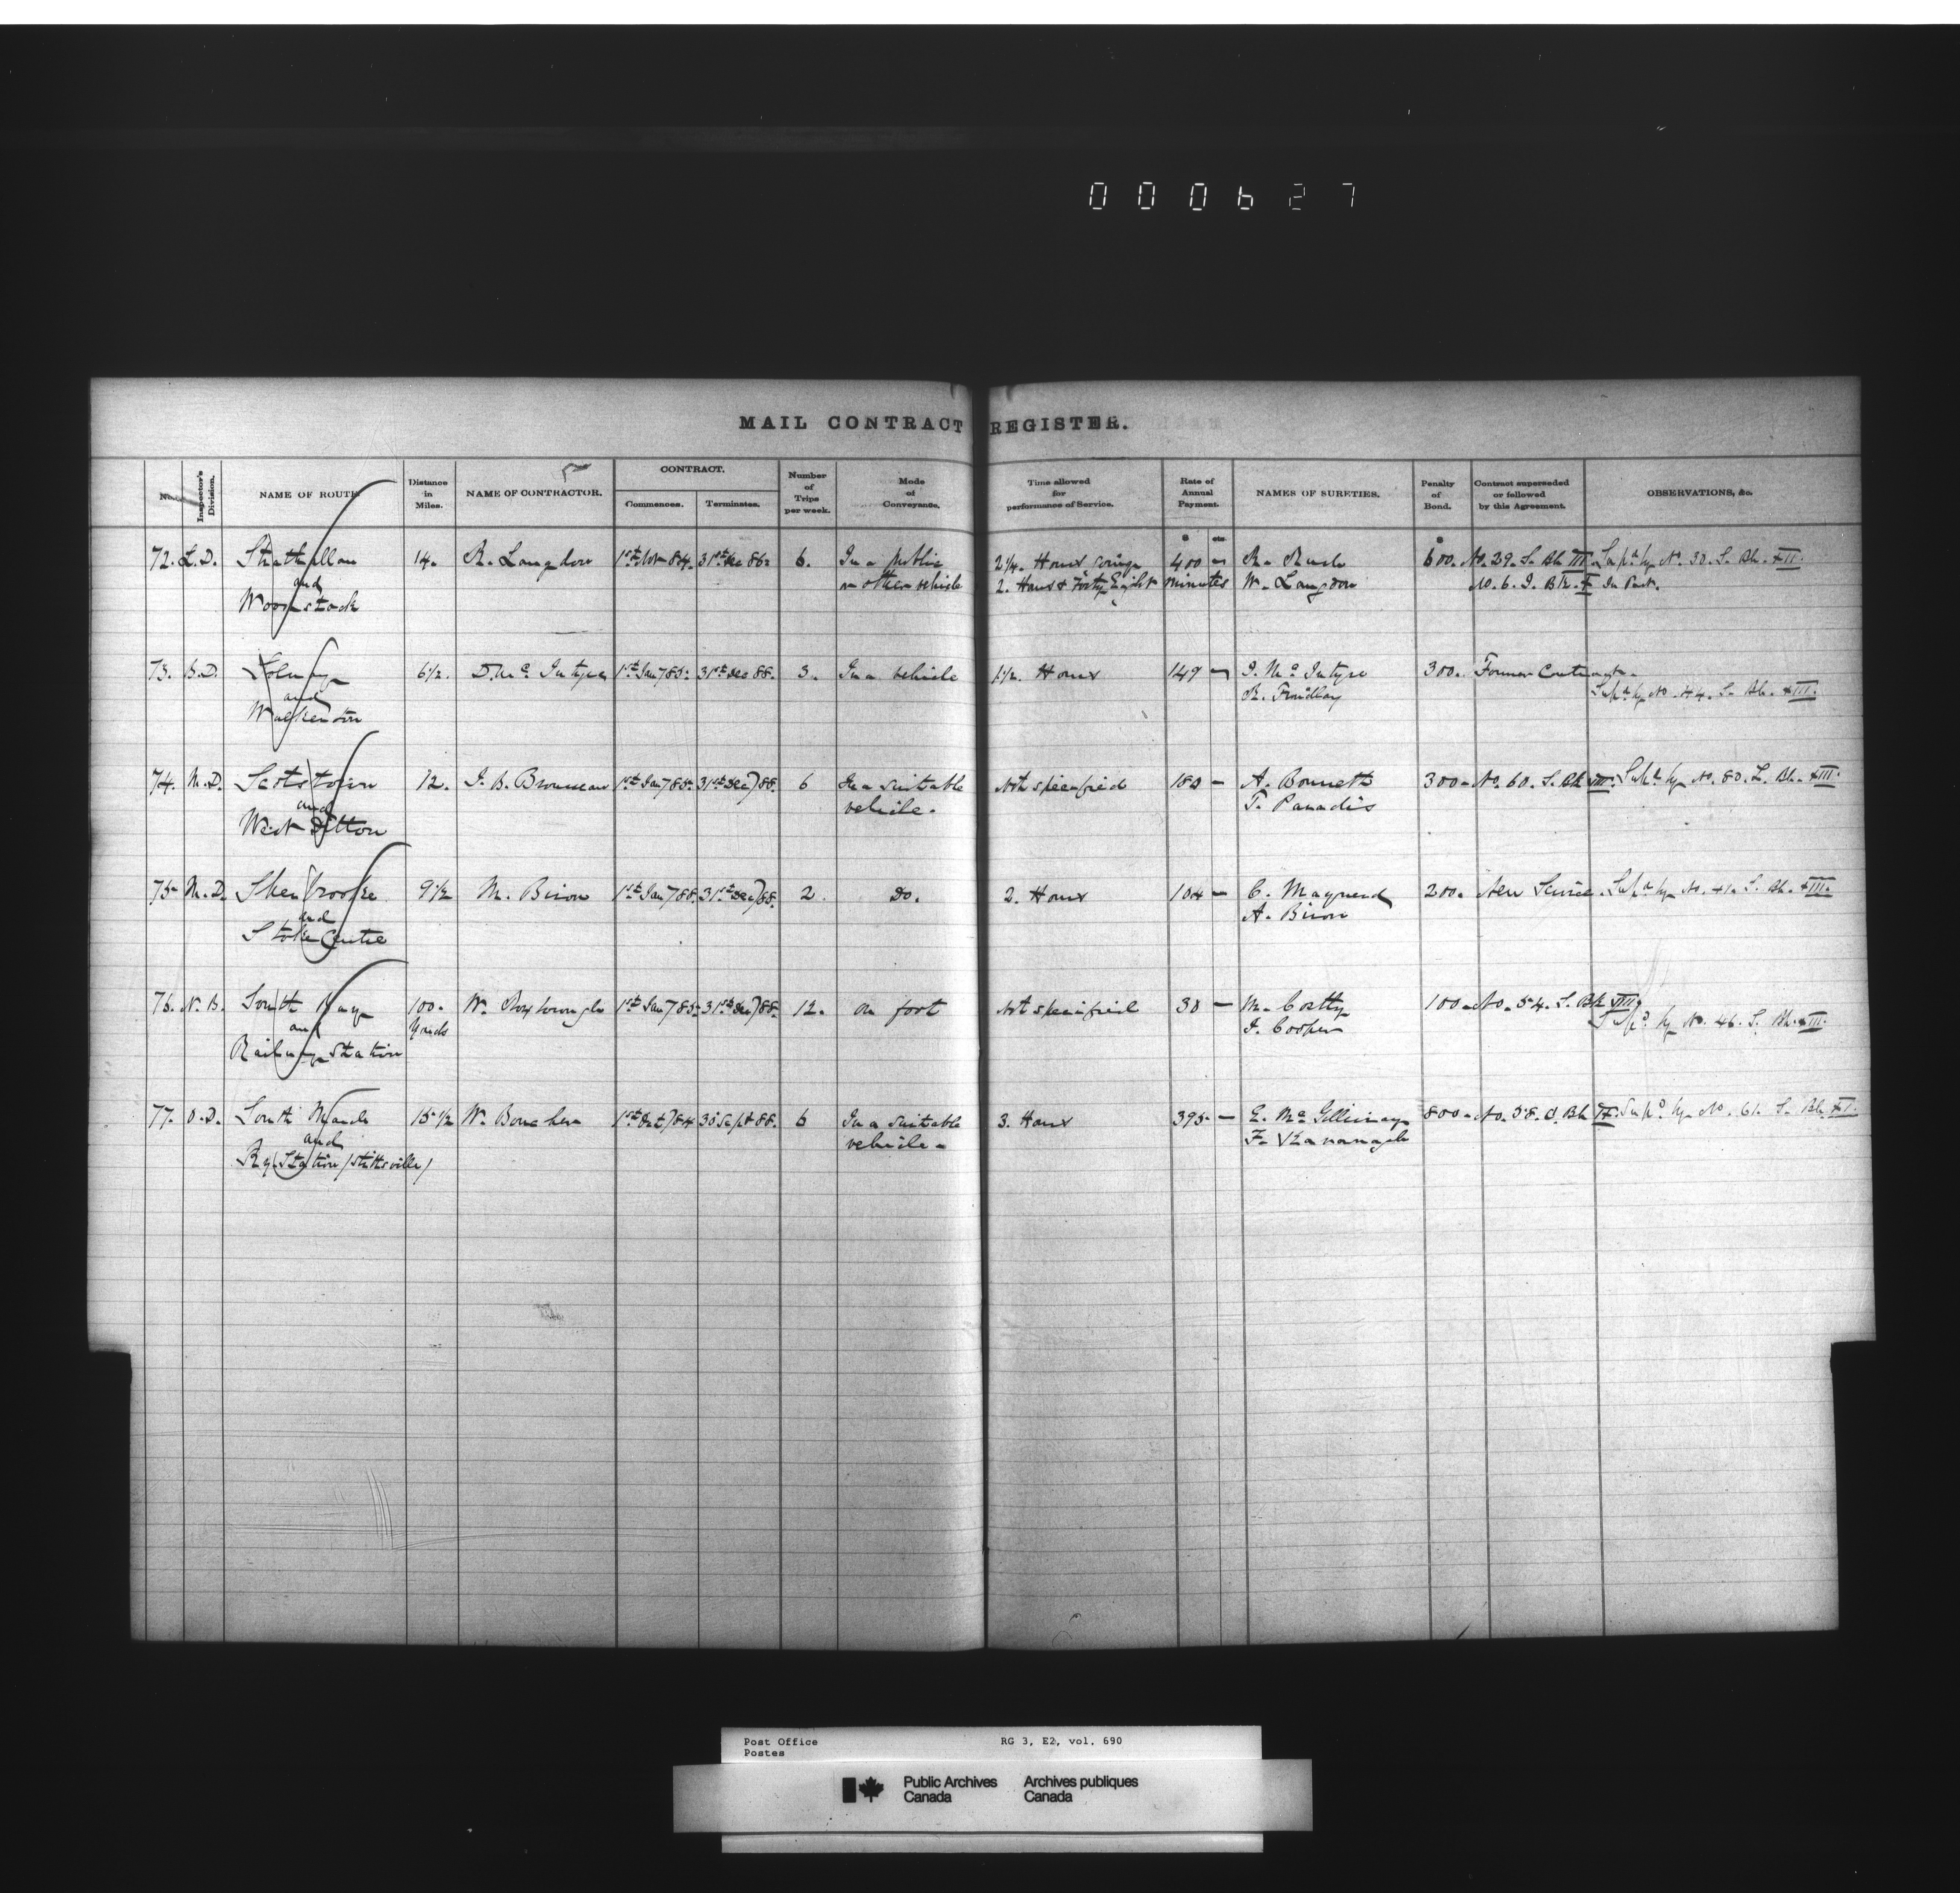 000627
MAIL CONTRACT REGISTER.
No. Inspector's Division. NAME OF ROUTE Distance in Miles. NAME OF CONTRACTOR. CONTRACT. Commences. Terminates. Number of Trips per week. Mode of Conveyance. Time allowed for performance of Service. Rate of Annual Payment. NAMES OF SURETIES. Penalty of Bond. Contract superseded or followed by this Agreement. OBSERVATIONS, &c.
$ cts. $
72. L.D. Strathallan 14. R. Langdon 1st Nov 84. 31st Dec 86 6. In a public 2¼ Hours going 400 — R. Rush 600. No. 29. S. Bk VIII Supd by No. 30. S. Bk. XII.
and or other vehicle 2. Hours & Forty Eight minutes W. Langdon No. 6. I. Bk. X In Part.
Woodstock
73. S.D. 6½. D. Mc Intyre 1st Jan 7 85. 31st Dec 88. 3. In a vehicle 1½. Hours 149 — J. Mc Intyre 300. Former Contract.
and R. Findlay Supd by No. 44. S. Bk. XIII.
Walkerton
74. M.D. Scotstown 12. J. B. 1st Jan 7 85. 31st Dec) 88. 6 In a suitable Not specified 180 — A. 300 — No. 60. S. Bk VIII. Supd by No. 80. S. Bk. XIII.
and vehicle. T. Paradis
West Ditton
75 M.D. Sherbrooke 9½ M. Biron 1st Jan 7 85. 31st Dec) 88. 2. Do. 2. Hours 104 — C. 200. New Service. Supd by No. 41. S. Bk. XIII.
and A. Biron
Stoke Centre
76. N.B. South Bay 100. W. Roxborough 1st Jan 7 85. 31st Dec) 88. 12. On foot Not specified 30 — M. 100 — No. 54. S. Bk VIII
and Yards J. Cooper Supd by No. 46. S. Bk. XIII.
Railway Station
77. O.D. South March 15½ W. 1st Oct) 84 30 Sept 88. 6 In a suitable 3. Hours 395 — E. Mc 800 — No. 58. S. Bk IX. Supd by No. 61. S. Bk. XI.
and vehicle — F. Kavanagh
Ry Station (Stittsville)
Post Office RG 3, E2, vol. 690
Postes
Public Archives Archives publiques
Canada Canada